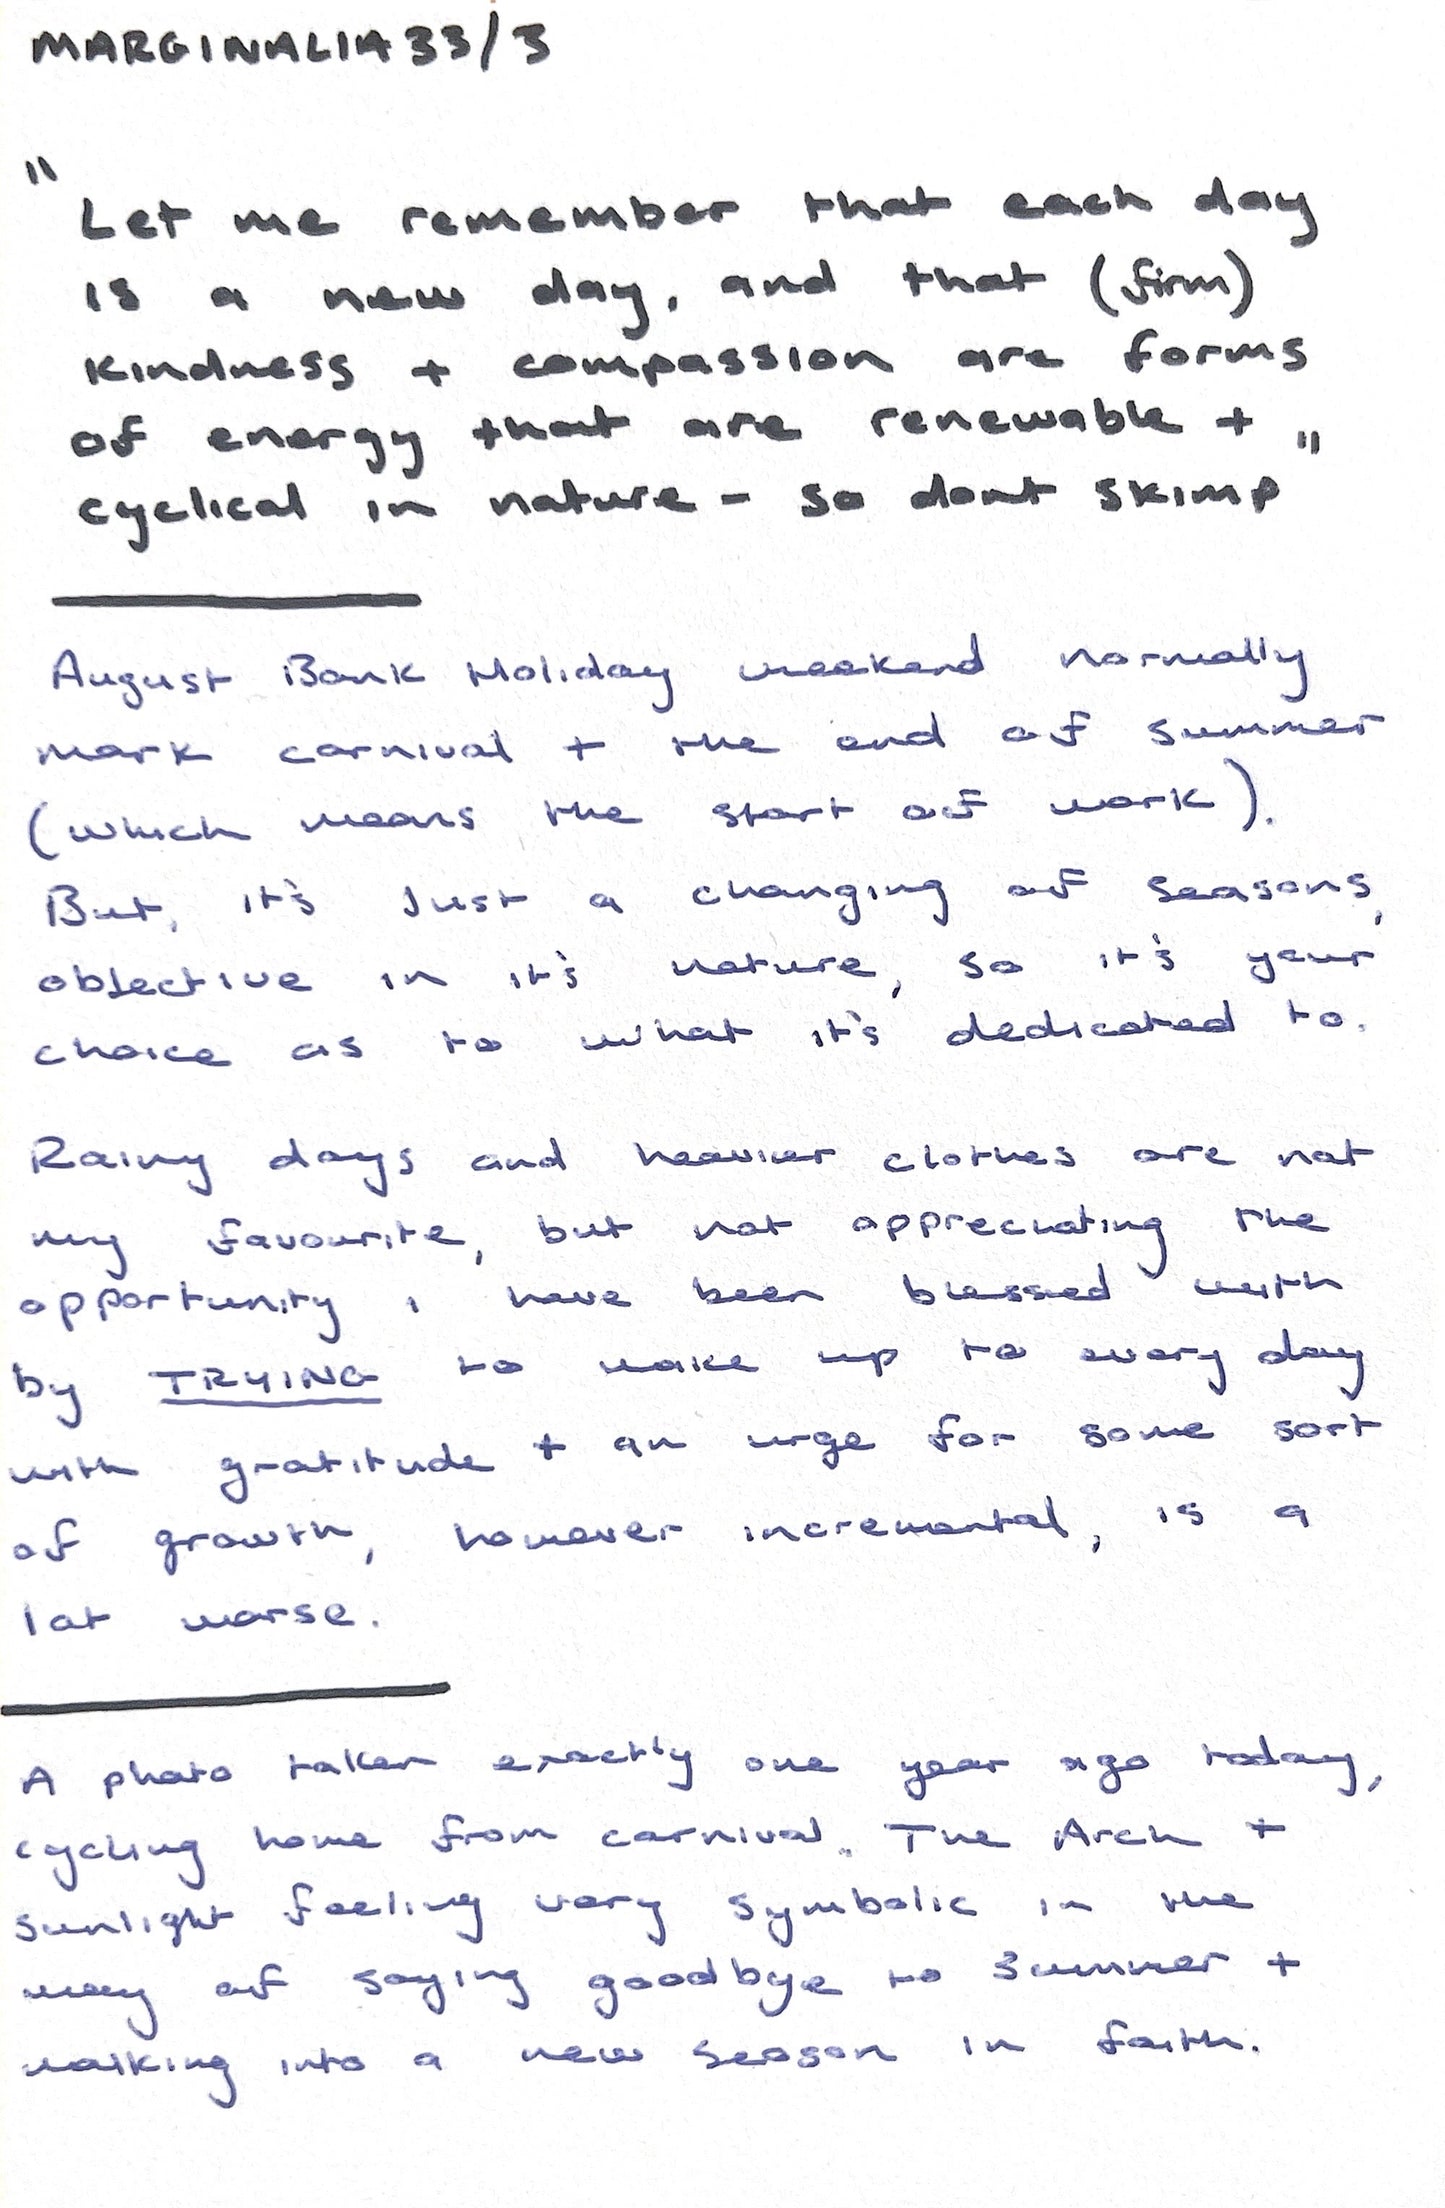 MARGINALIA 33/3
"Let me remember that each day
is a new day, and that (firm)
kindness + compassion are forms
of energy that are renewable +
cyclical in nature - so dont skimp"
August Bank Holiday weekend normally
mark carnival + the end of summer
(which means the start of work).
But, it's Just a changing of seasons,
objective in it's nature, so it's your
choice as to what it's dedicated to.
Rainy days and heavier clothes are not
my favourite, but not appreciating the
opportunity i have been blessed with
by TRYING to wake up to every day
with gratitude + an urge for some sort
of growth, however incremental, is a
lot worse.
A photo taken exactly one year ago today,
cycling home from carnival. The Arch +
sunlight feeling very symbolic in the
way of saying goodbye to summer +
walking into a new season in faith.